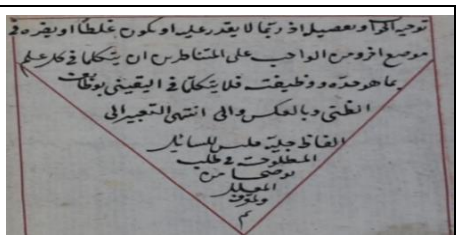 توجيه الجواب وتفصيله اذ ربما لا يقدر عليه او يكون غلطا او يضره في
موضع اخر ومن الواجب على المتناظرين ان يتكلما في كل علم
بما هو حده ووظيفته فلا يتكلما في اليقيني بوظائف
الظني وبالعكس والى انتهى التعبير الى
الفاظ جلية فليس للسائل
المطلوب في طلب
توضيحها من
المعلل
م